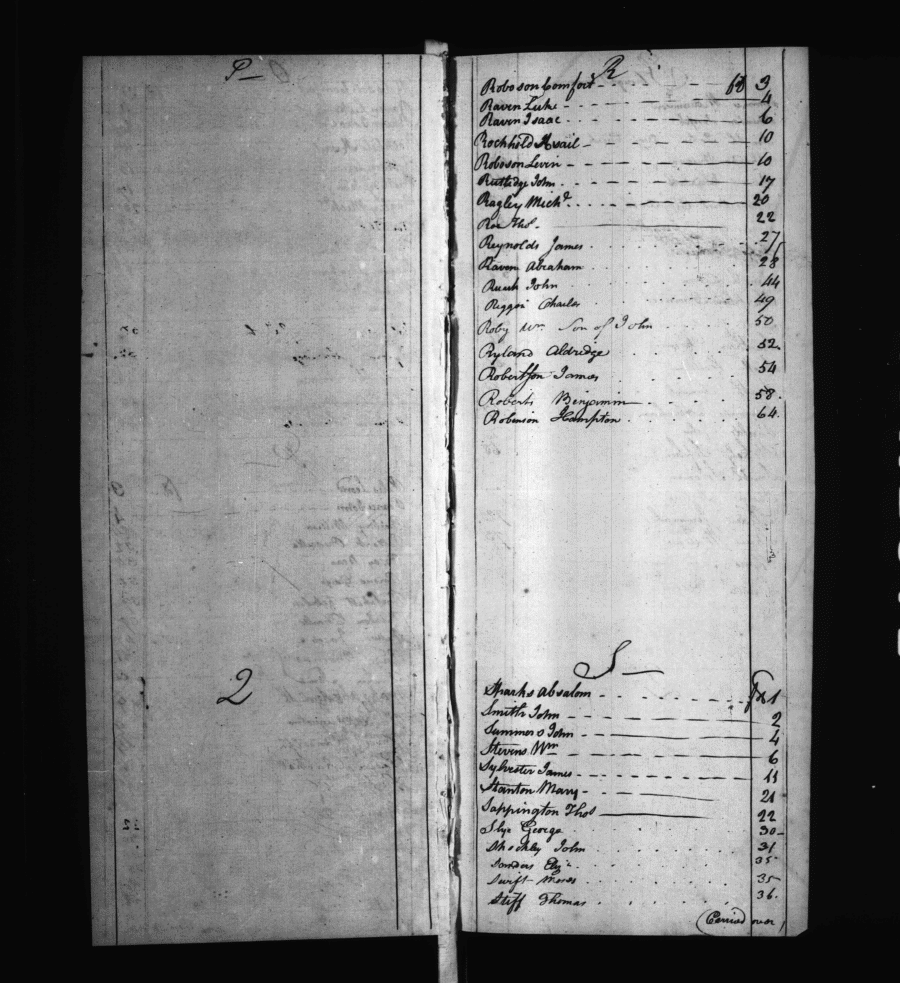 P
2
R
Roboson Comfort fo 3
Raven Luke 4
Raven Isaac 6
Rochhold Asail 10
Roboson Levin 10
Rutledge John 17
Ragley Mich.l 20
Roe Tho.s 22
Reynolds James 27
Raven Abraham 28
John 44
Riggen Charles 49
Roby Wm Son of John 50
Ryland Aldredge 52
Robertson James 54
Roberts Benjamin 58
Robinson Hampton 64
S
Sparks Absalom Fo 1
Smith John 2
Summers John 4
Stevens Wm 6
Sylvester James 11
Stanton Mary 21
Sappington Thos 22
Slye George 30
Shockley John 31
Sanders 35
Swift Moses 35
Stiff Thomas 36
(Carried over)